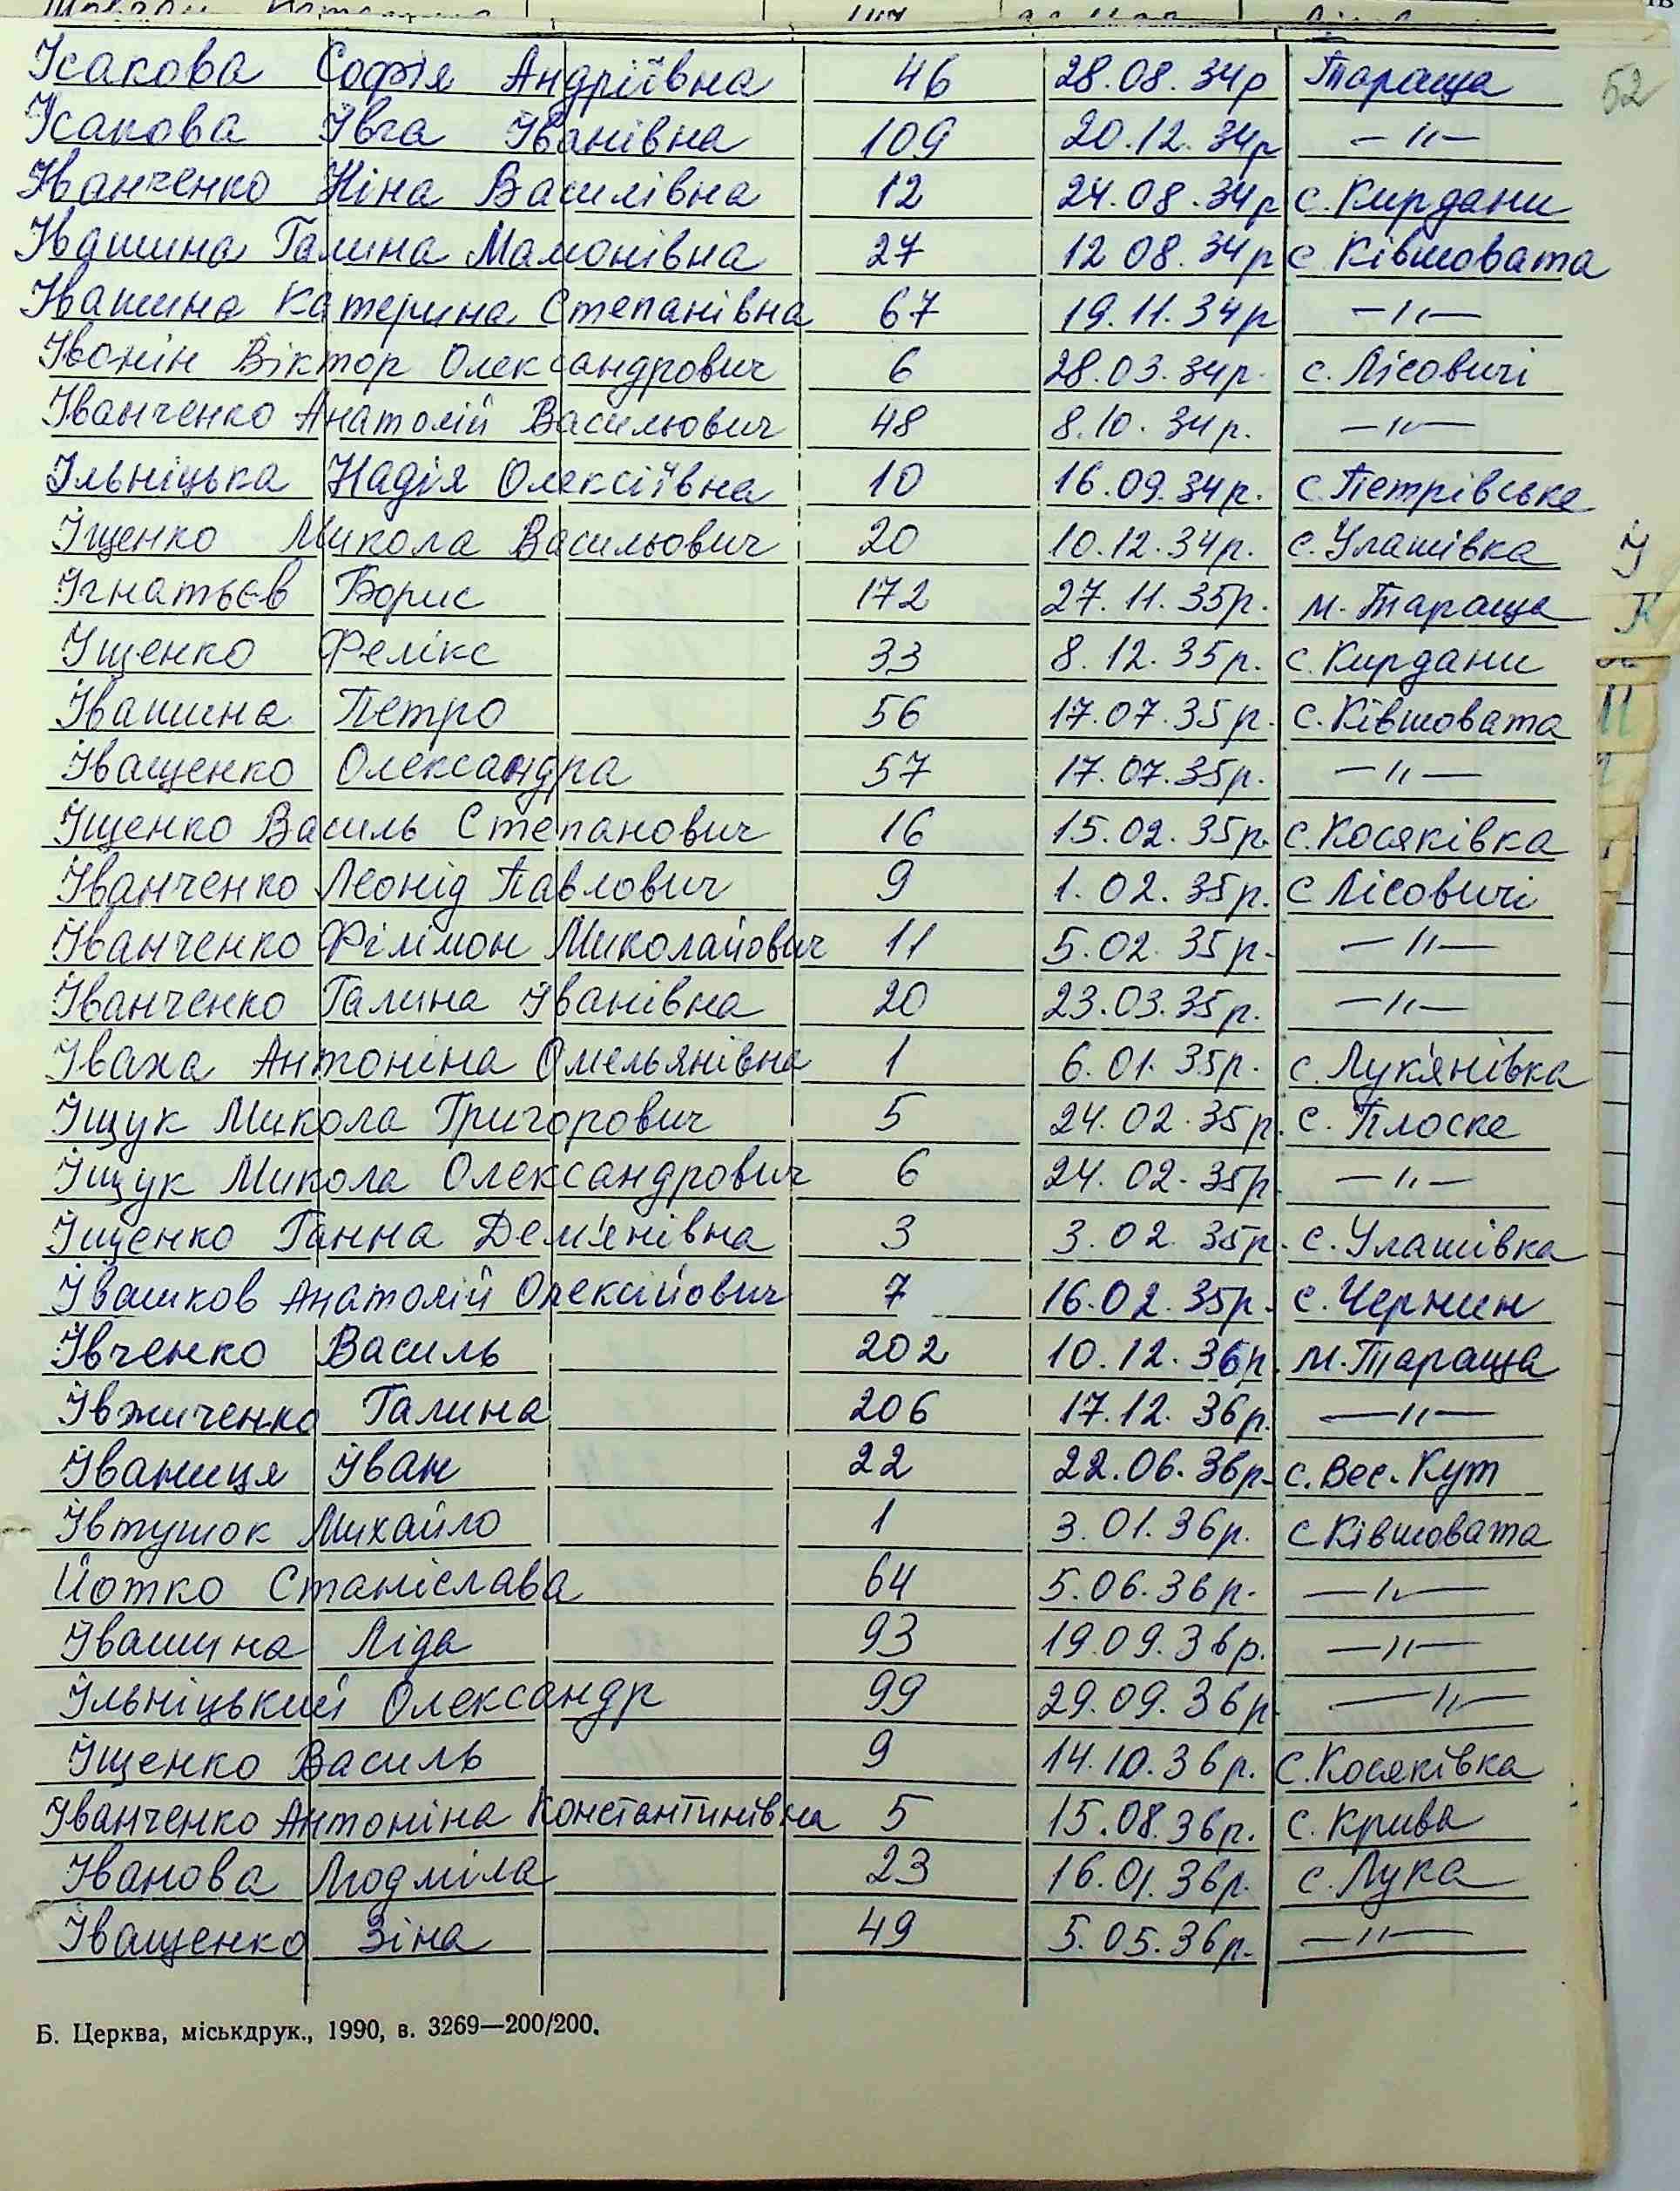 Ісакова Софія Андріївна 46 28.08.34р Тараща 52
Ісакова Івга Іванівна 109 20.12.34р —"—
Іванченко Ніна Василівна 12 24.08.34р с. Кирдани
Івашина Галина Мамонівна 27 12 08.34р с Ківшовата
Івашина Катерина Степанівна 67 19.11.34р —"—
Івонін Віктор Олександрович 6 28.03.34р. с. Лісовичі
Іванченко Анатолій Васильович 48 8.10.34р. —"—
Ільніцька Надія Олексіївна 10 16.09.34р. с. Петрівське
Іщенко Микола Васильович 20 10.12.34р. с. Улашівка
Ігнатьєв Борис 172 27.11.35р. м. Тараща
Іщенко Фелікс 33 8.12.35р. с. Кирдани
Івашина Петро 56 17.07.35р. с. Ківшовата
Іващенко Олександра 57 17.07.35р. —"—
Іщенко Василь Степанович 16 15.02.35р. с. Косяківка
Іванченко Леонід Павлович 9 1.02.35р. с Лісовичі
Іванченко Філімон Миколайович 11 5.02.35р. —"—
Іванченко Галина Іванівна 20 23.03.35р. —"—
Іваха Антоніна Омельянівна 1 6.01.35р. с. Лук'янівка
Іщук Микола Григорович 5 24.02.35р. с. Плоске
Іщук Микола Олександрович 6 24.02.35р —"—
Іщенко Ганна Дем'янівна 3 3.02.35р. с. Улашівка
Івашков Анатолій Олексійович 7 16.02.35р. с. Чернин
Івченко Василь 202 10.12.36р. м. Тараща
Івжиченко Галина 206 17.12.36р. —"—
Іваниця Іван 22 22.06.36р. с. Вес. Кут
Івтушок Михайло 1 3.01.36р. с Ківшовата
Йотко Станіслава 64 5.06.36р. —"—
Івашина Ліда 93 19.09.36р. —"—
Ільніцький Олександр 99 29.09.36р —"—
Іщенко Василь 9 14.10.36р. с. Косяківка
Іванченко Антоніна Константинівна 5 15.08.36р. с. Крива
Іванова Людміла 23 16.01.36р. с. Лука
Іващенко Зіна 49 5.05.36р. —"—
Б. Церква, міськдрук., 1990, в. 3269—200/200.